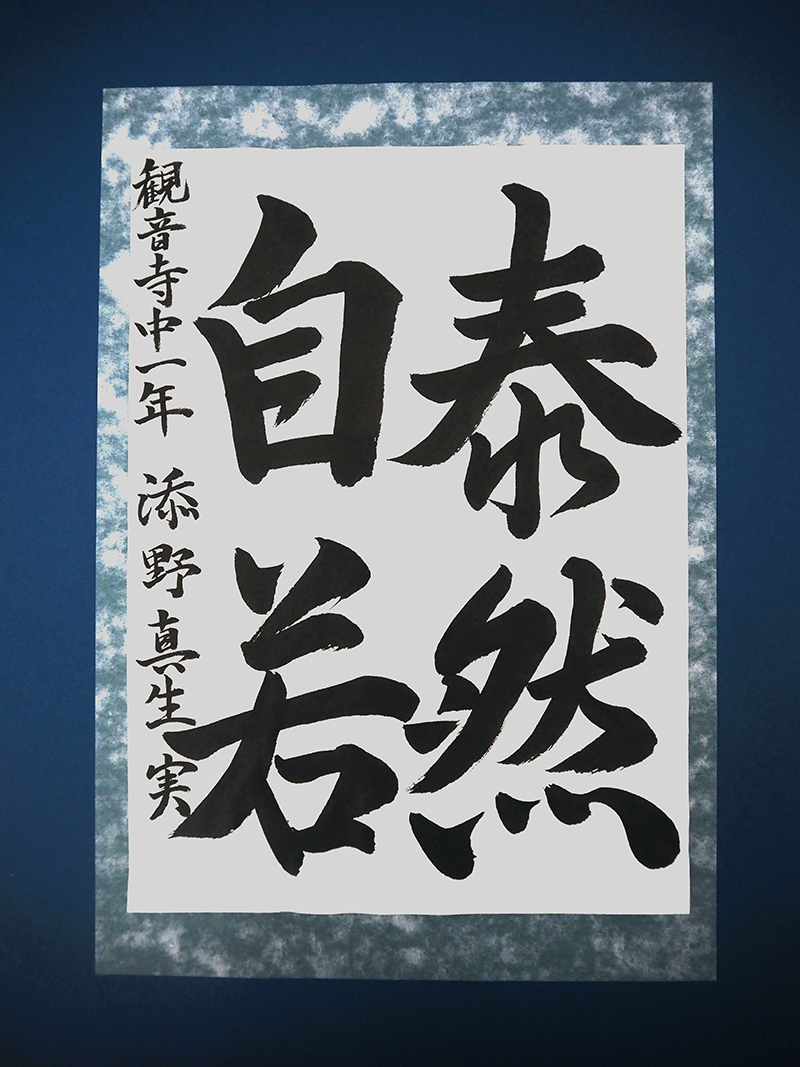 泰然
自若
観音寺中一年 添野真生実